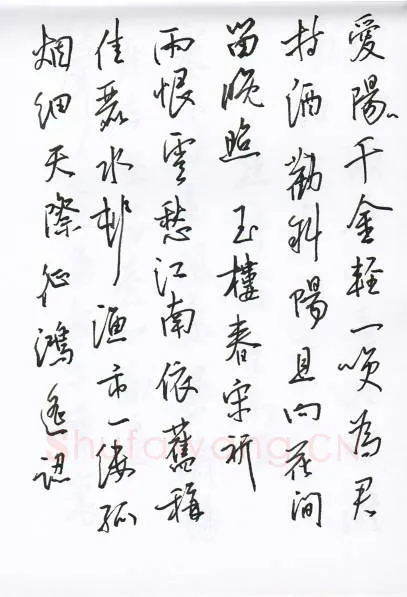 愛陽千金輕一唉為君
持酒勸斜陽且向花间
留晚照 玉樓春宋祈
雨恨雲愁江南依舊稱
佳麗水村漁市一缕孤
烟细天際征鴻遥認
Shufawang.CN